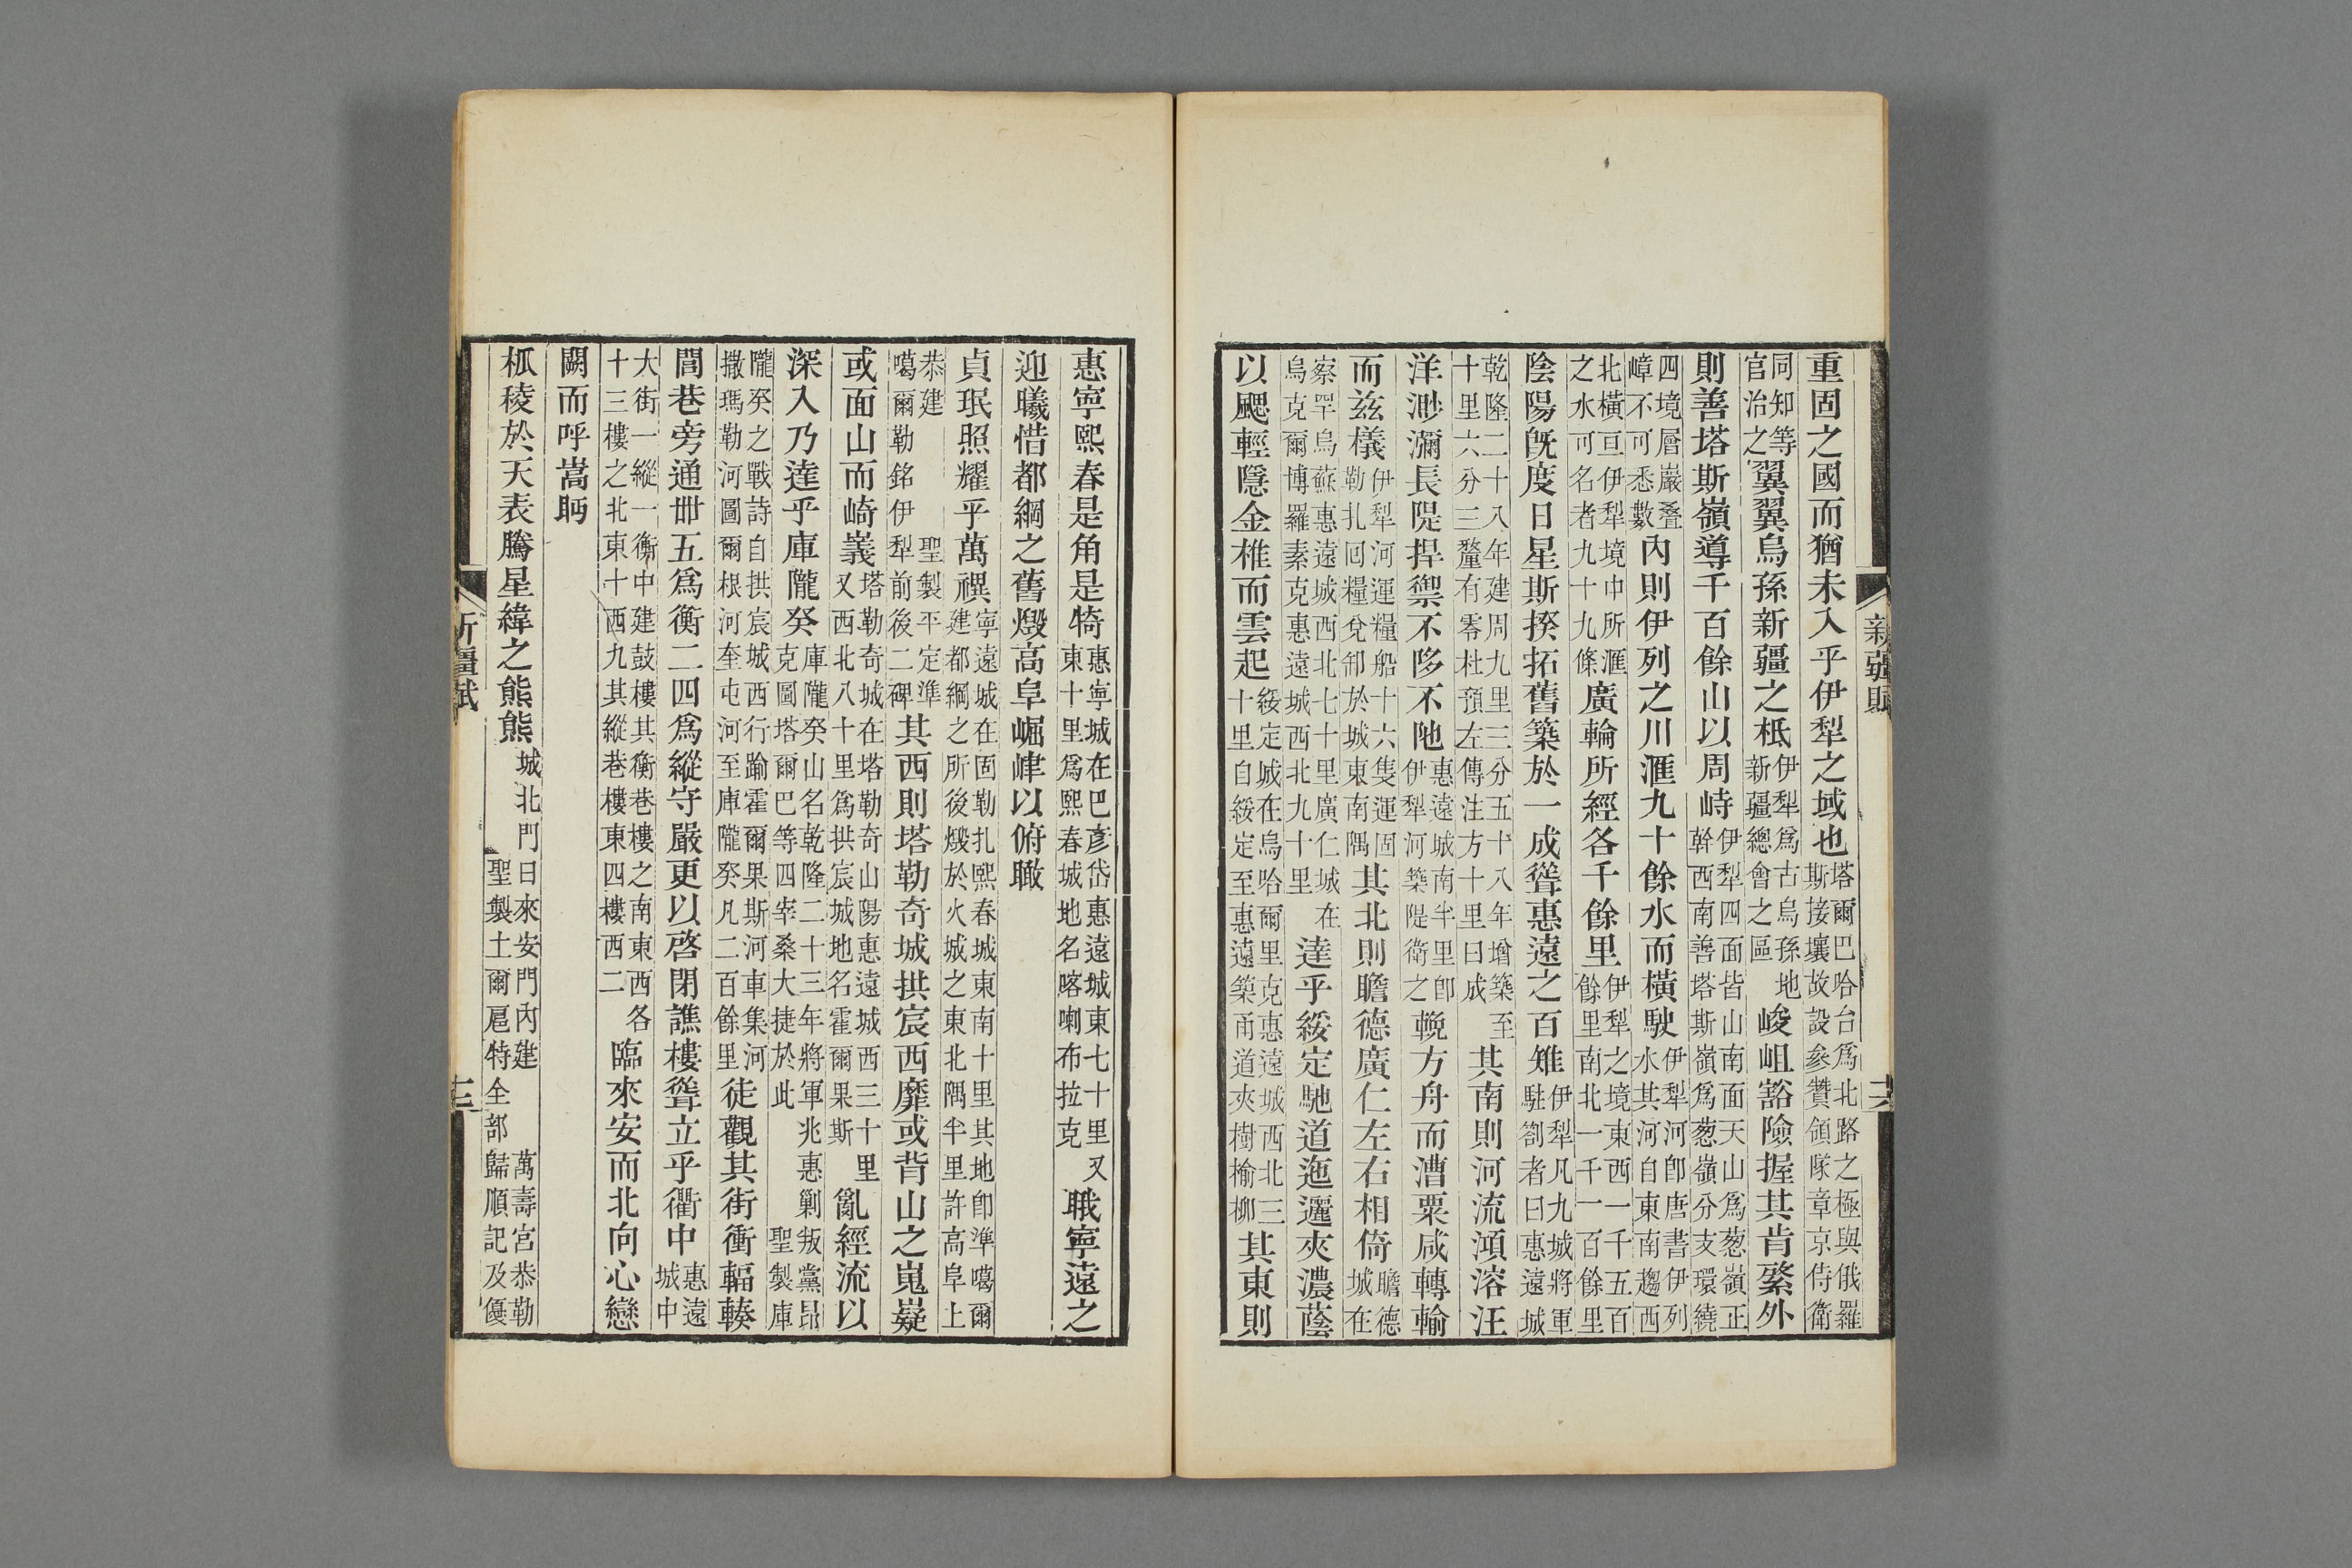 重固之國而猶未入乎伊犁之域也塔爾巴哈台爲北路之極與俄羅斯接壤故設參贊領隊章京侍衛
同知等官治之翼翼烏孫新疆之柢伊犁爲古烏孫地新疆總會之區峻岨豁險握其肯綮外
則善塔斯嶺導千百餘山以周峙伊犁四面皆山南面天山爲葱嶺正幹西南善塔斯嶺爲葱嶺分支環繞
四境層巖叠嶂不可悉數內則伊列之川滙九十餘水而橫駛伊犁河卽唐書伊列水其河自東南趨西
北橫亘伊犁境中所滙之水可名者九十九條廣輪所經各千餘里伊犁之境東西一千五百餘里南北一千一百餘里
陰陽旣度日星斯揆拓舊築於一成聳惠遠之百雉伊犁凡九城將軍駐劄者曰惠遠城
乾隆二十八年建周九里三分五十八年增築至十里六分三釐有零杜預左傳注方十里曰成其南則河流澒溶汪
洋渺瀰長隄捍禦不陊不阤惠遠城南半里卽伊犁河築隄衛之輓方舟而漕粟咸轉輸
而兹檥伊犁河運糧船十六隻運固勒扎囘糧兌卸於城東南隅其北則瞻德廣仁左右相倚瞻德城在
察罕烏蘇惠遠城西北七十里廣仁城在烏克爾博羅素克惠遠城西北九十里達乎綏定馳道迤邐夾濃蔭
以颸輕隱金椎而雲起綏定城在烏哈爾里克惠遠城西北三十里自綏定至惠遠築甬道夾樹榆柳其東則
新疆賦
惠寧熙春是角是犄惠寧城在巴彥岱惠遠城東七十里又東十里爲熙春城地名喀喇布拉克職寧遠之
迎曦惜都綱之舊燬高阜崛峍以俯瞰
貞珉照耀乎萬禩寧遠城在固勒扎熙春城東南十里其地卽準噶爾建都綱之所後燬於火城之東北隅半里許高阜上
恭建聖製平定準噶爾勒銘伊犁前後二碑其西則塔勒奇城拱宸西靡或背山之嵬嶷
或面山而崎嶬塔勒奇城在塔勒奇山陽惠遠城西三十里又西北八十里爲拱宸城地名霍爾果斯亂經流以
深入乃達乎庫隴癸庫隴癸山名乾隆二十三年將軍兆惠剿叛黨昂克圖塔爾巴等四宰桑大捷於此聖製庫
隴癸之戰詩自拱宸城西行踰霍爾果斯河車集河撒瑪勒河圖爾根河奎屯河至庫隴癸凡二百餘里徒觀其街衝輻輳
閭巷旁通卌五爲衡二四爲縱守嚴更以啓閉譙樓聳立乎衢中惠遠城中
大街一縱一衡中建鼓樓其衡巷樓之南東西各十三樓之北東十西九其縱巷樓東四樓西二臨來安而北向心戀
闕而呼嵩眄
柧稜於天表騰星緯之熊熊城北門曰來安門內建萬壽宮恭勒聖製土爾扈特全部歸順記及優
新疆賦